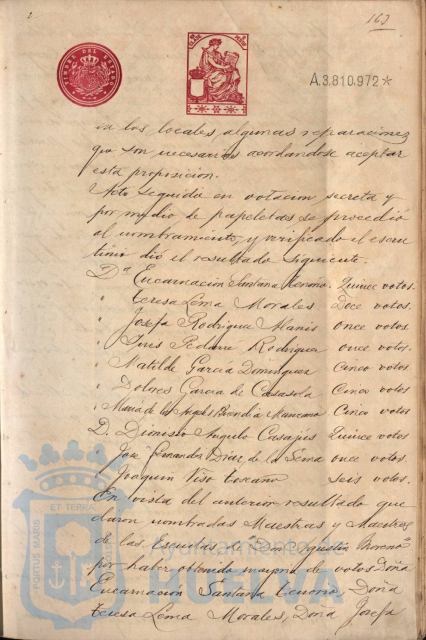 163
TIMBRE DEL ESTADO
A.3.810.972*
en los locales, algunas reparaciones
que son necesarias acordandose aceptar
esta proposicion.
Acto seguido en votacion secreta y
por medio de papeletas se procedió
al nombramiento, y verificado el escru
tinio dió el resultado siguiente.
Dª Encarnación Santana Tenorio. Quince votos.
" Teresa Lema Morales. Doce votos.
" Josefa Rodriguez Alanis once votos.
" Ines Rodriguez once votos.
" Matilde Garcia Dominguez Cinco votos
" Dolores Garcia de Casasola Cinco votos
" Maria de los Angeles Manzano Cinco votos
D. Dionisio Angulo Casajús Quince votos
" José Fernandez Diaz de la Serna once votos.
" Joaquin Viso Toscano Seis votos.
En vista del anterior resultado que
daron nombradas Maestras y Maestros
de las Escuelas de Don Agustin Moreno
por haber obtenido mayoria de votos Doña
Encarnacion Santana Tenorio, Doña
Teresa Lema Morales, Doña Josefa
PORTUS MARIS ET TERRÆ
Ayuntamiento de
HUELVA